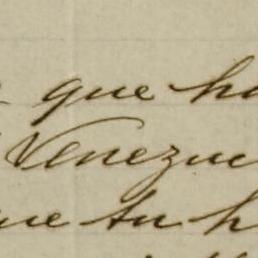 que ha
Venezue
que tu h